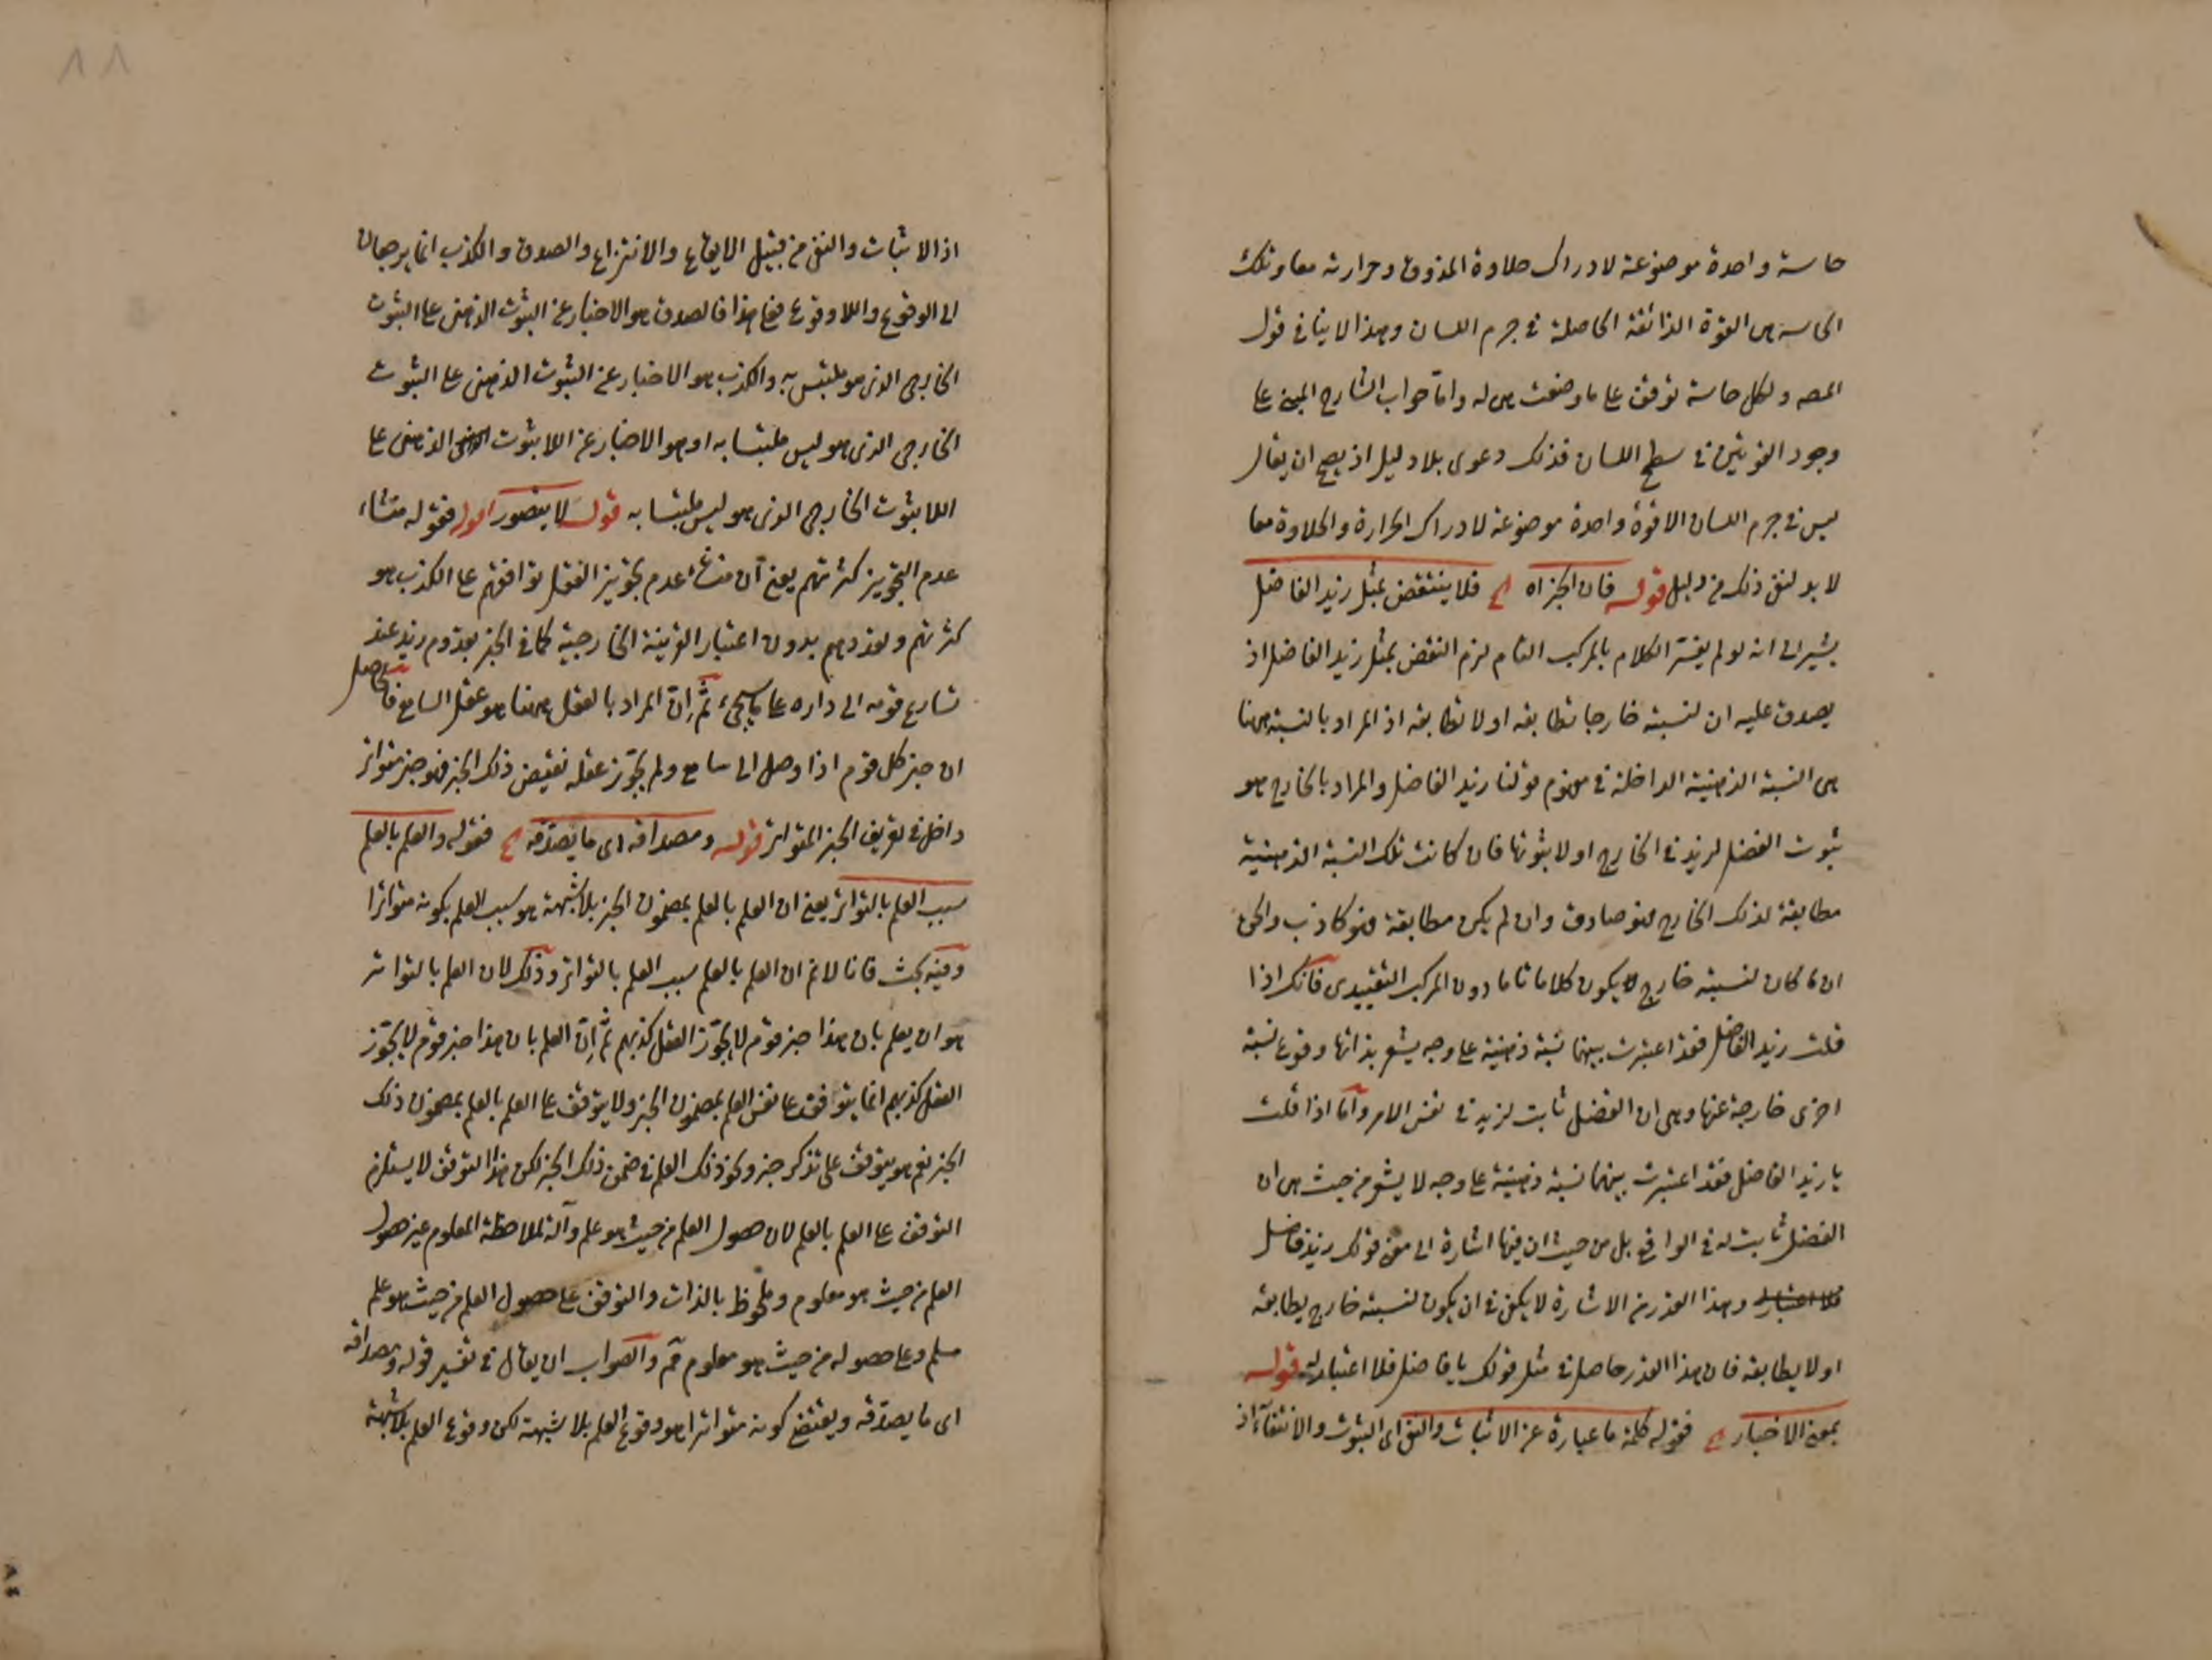 حاسة واحدة موضوعة لادراك حلاوة المذوق وحرارته معا وتلك
الحاسة هى القوة الذائقة الحاصلة فى جرم اللسان وهذا لا ينافى قول
المصه ولكل حاسة توقف على ما وضعت هى له واما جواب الشارح المبنى على
وجود القوتين فى سطح اللسان فذلك دعوى بلا دليل اذ يصح ان يقال
ليس فى جرم اللسان الا قوة واحدة موضوعة لادراك الحرارة والحلاوة معا
لا بد لنفى ذلك من دليل قوله فان الخبر اه فلا ينتقض بمثل زيد الفاضل
يشير الى انه لو لم يفسر الكلام بالمركب التام لزم النقض بمثل زيد الفاضل اذ
يصدق عليه ان لنسبته خارجا تطابقه او لا تطابقه اذ المراد بالنسبة ههنا
هى النسبة الذهنية الداخلة فى مفهوم قولنا زيد الفاضل والمراد بالخارج هو
ثبوت الفضل لزيد فى الخارج او لا ثبوتها فان كانت تلك النسبة الذهنية
مطابقة لذلك الخارج فهو صادق وان لم يكن مطابقة فهو كاذب والحق
ان ما كان لنسبته خارج لا يكون كلاما تاما دون المركب التقييدى فانك اذا
قلت زيد الفاضل فقد اعتبرت بينهما نسبة ذهنية على وجه يشعر بذاتها وقوع نسبة
اخرى خارجة عنها وهى ان الفضل ثابت لزيد فى نفس الامر واما اذا قلت
يا زيد الفاضل فقد اعتبرت بينهما نسبة ذهنية على وجه لا يشعر من حيث هى ان
الفضل ثابت له فى الواقع بل من حيث ان فيها اشارة الى معنى قولك زيد فاضل
وهذا القدر من الاشارة لا يكفى فى ان يكون لنسبته خارج يطابقه
او لا يطابقه فان هذا القدر حاصل فى مثل قولك يا فاضل فلا اعتبار له قوله
بمعنى الاخبار فقوله كلمة ما عبارة عن الاثبات والنفى اى الثبوت والانتفاء اذ
٨٨
اذ الاثبات والنفى من قبيل الايقاع والانتزاع والصدق والكذب انما يرجعان
الى الوقوع واللا وقوع فعلى هذا فالصدق هو الاخبار عن الثبوت الذهنى على الثبوت
الخارجى الذى هو ملتبس به والكذب هو الاخبار عن الثبوت الذهنى على الثبوت
الخارجى الذى هو ليس ملتبسا به او هو الاخبار عن اللا ثبوت الذهنى على
اللا ثبوت الخارجى الذى هو ليس ملتبسا به قوله لا يتصور فقوله منشاء
عدم التجويز كثرتهم يعنى ان منشاء عدم تجويز العقل توافقهم على الكذب هو
كثرتهم وتعددهم بدون اعتبار القرينة الخارجية كما فى الخبر بقدوم زيد عند
تسارع قومه الى داره على ما سيجىء ثم ان المراد بالعقل ههنا هو عقل السامع فالحاصل
ان خبر كل قوم اذا وصل الى سامع ولم يجوز عقله نقيض ذلك الخبر فهو خبر متواتر
داخل فى تعريف الخبر المتواتر قوله ومصداقه اى ما يصدقه فقوله والعلم بالعلم
سبب العلم بالتواتر يعنى ان العلم بالعلم بمضمون الخبر بلا شبهة هو سبب العلم بكونه متواترا
وفيه بحث فانا لا نم ان العلم بالعلم سبب العلم بالتواتر وذلك لان العلم بالتواتر
هو ان يعلم بان هذا خبر قوم لا يجوز العقل كذبهم ثم ان العلم بان هذا خبر قوم لا يجوز
العقل كذبهم انما يتوقف على نفس العلم بمضمون الخبر ولا يتوقف على العلم بالعلم بمضمون ذلك
الخبر نعم هو يتوقف على تذكر خبر وكون ذلك العلم فى ضمن ذلك الخبر لكن هذا التوقف لا يستلزم
التوقف على العلم بالعلم لان حصول العلم من حيث هو علم وآلة لملاحظة المعلوم غير حصول
العلم من حيث هو معلوم وملحوظ بالذات والتوقف على حصول العلم من حيث هو علم
مسلم وعلى حصوله من حيث هو معلوم مم والصواب ان يقال فى تفسير قوله ومصداقه
اى ما يصدقه ويقتضى كونه متواترا هو وقوع العلم بلا شبهة لكن وقوع العلم بلا شبهة